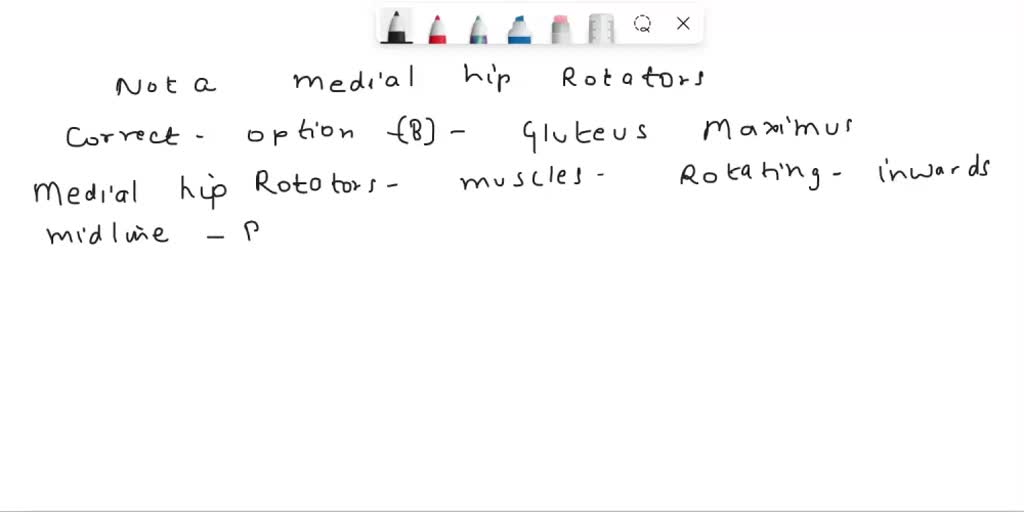 Not a medial hip Rotators
Correct - option (B) - Gluteus Maximus
Medial hip Rototors - muscles - Rotating - inwards
midline - P